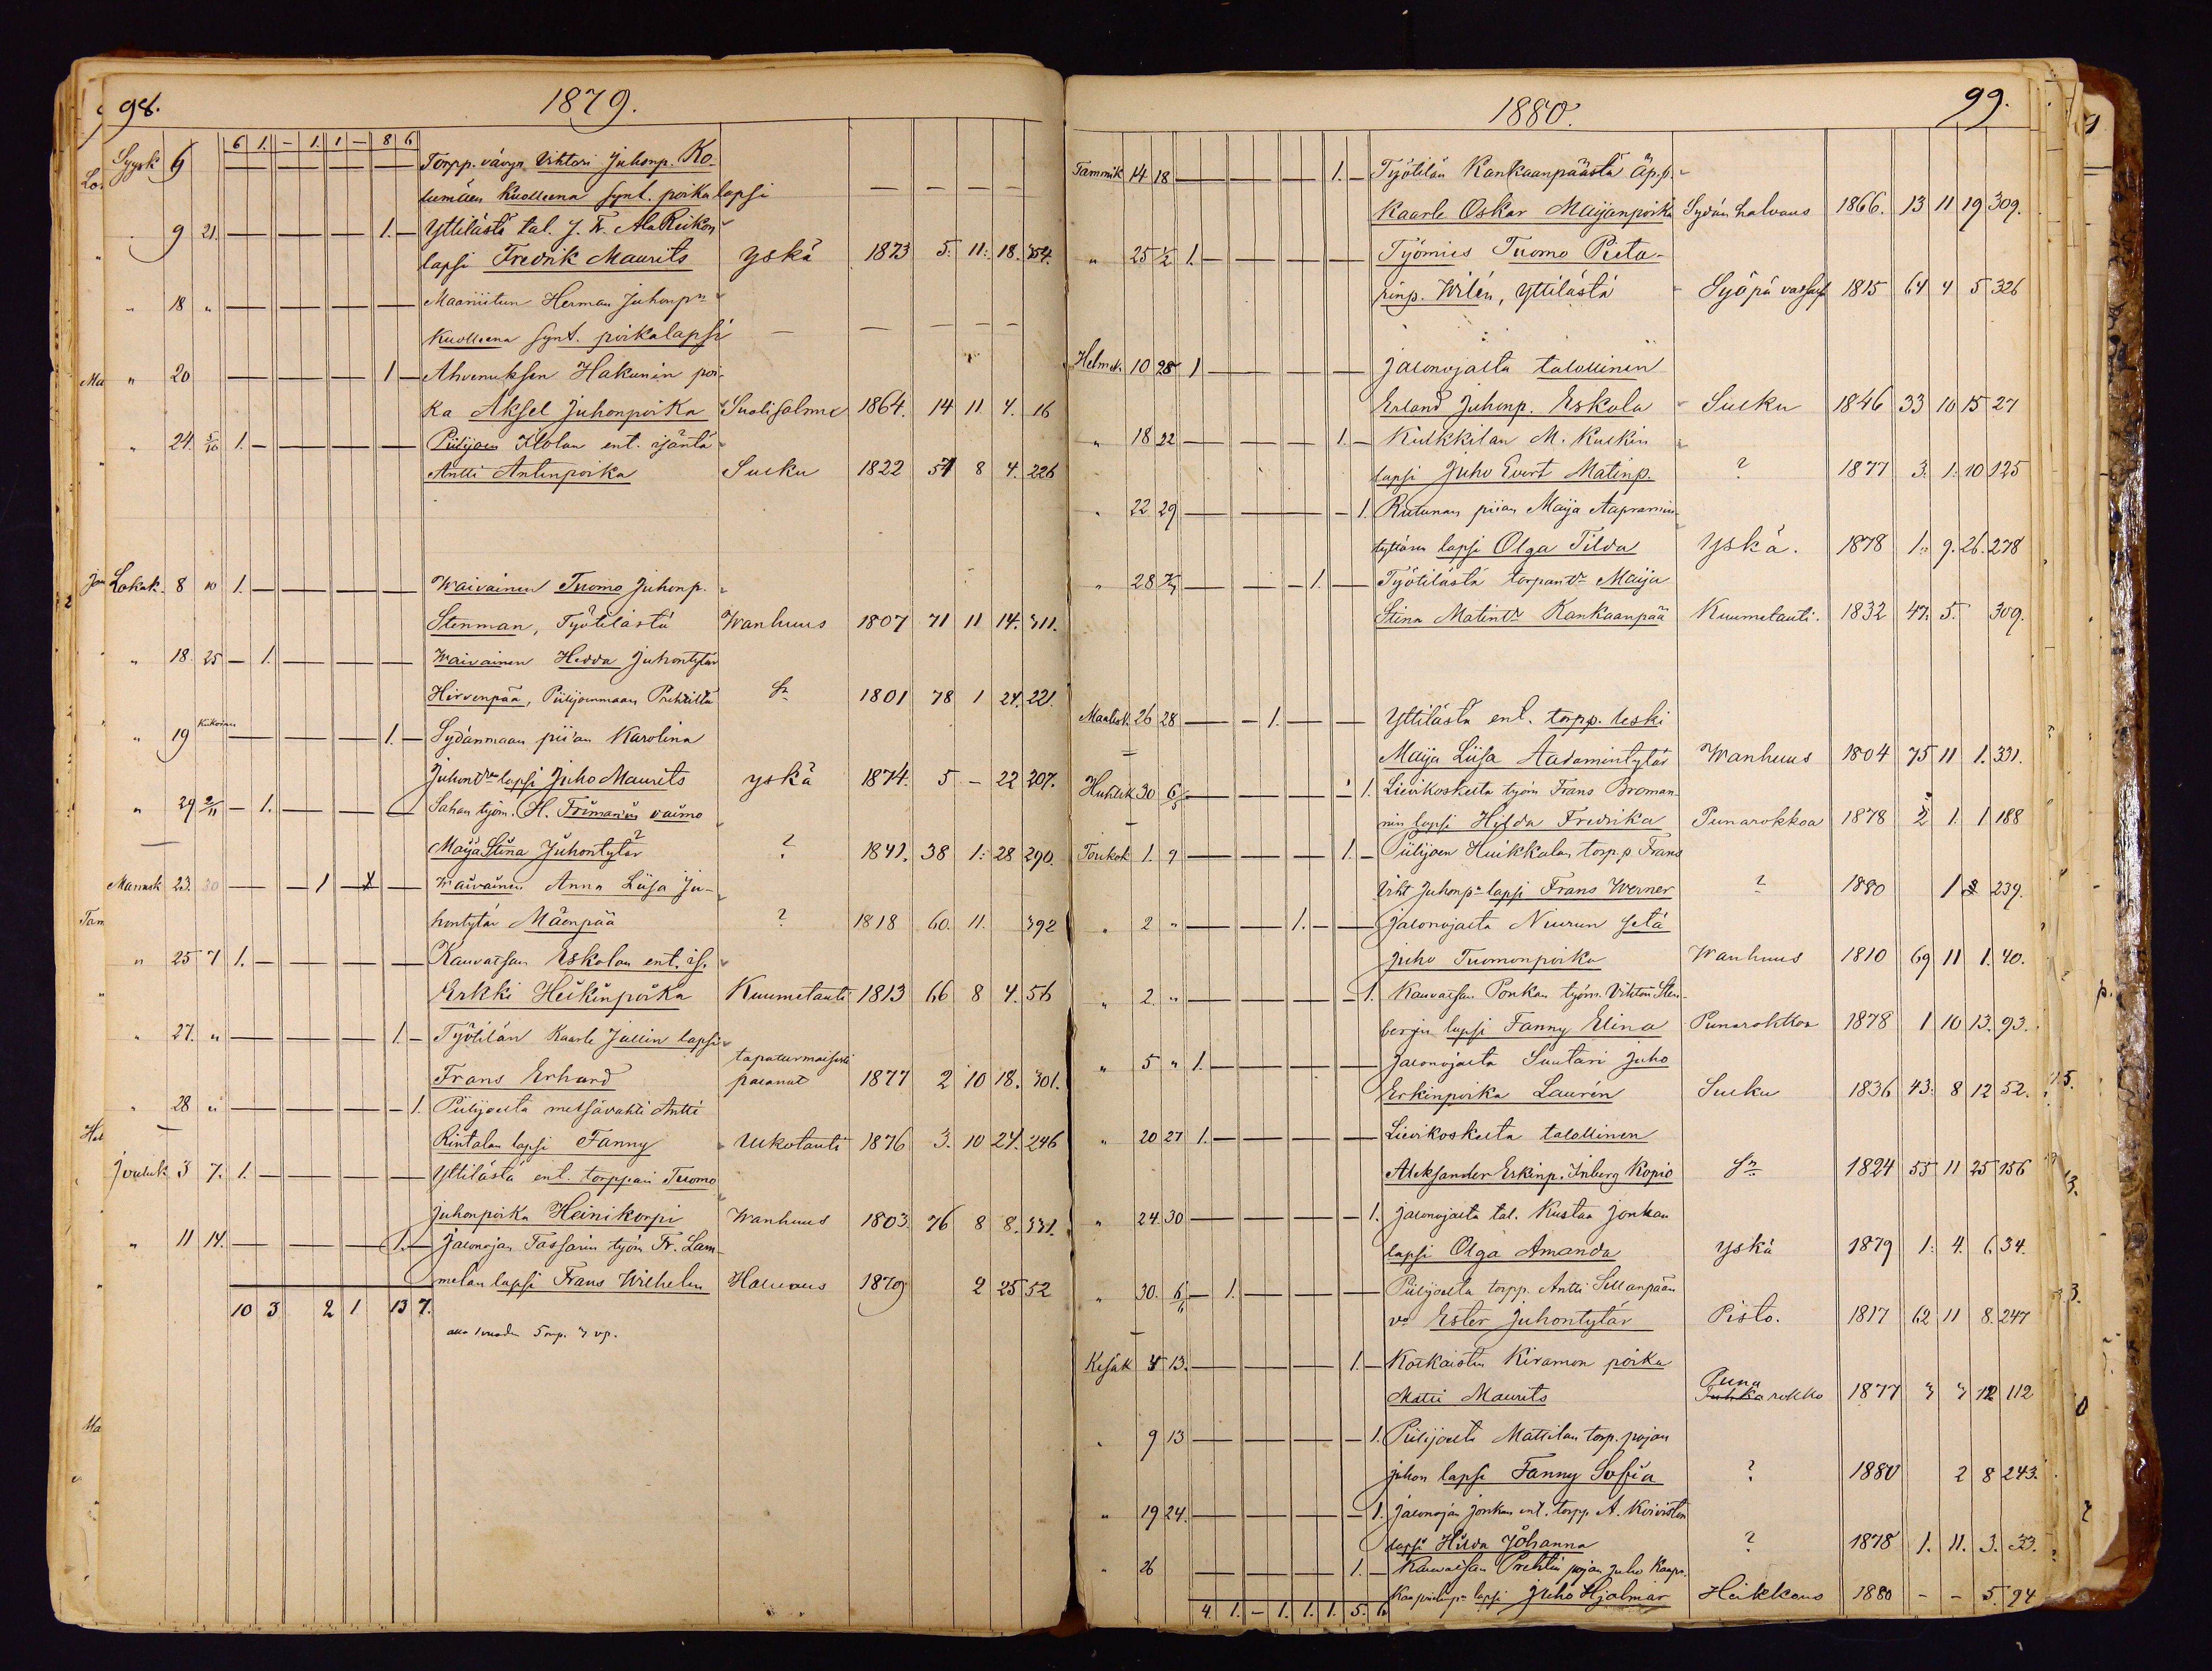 98.
1879.
6 1. - 1. 1 - 8 6
Syysk 6 Torpp. vävyn Vihtori Juhonp. Ko-
lumäen Kuolleena synt. poikalapsi
9 21. 1. Yttilästä tal. J. F. AlaRiikon
lapsi Fredrik Maurits Yskä 1873 5. 11. 18. 354.
" 18 " Maaniitun Herman Juhonpn
Kuolleena synt. poikalapsi
" 20 1 Ahvenuksen Hakunin poi-
ka Aksel Juhonpoika Suolisolme 1864. 14 11 4. 16
" 24. 5/10 1. Piilijoen Ilolan ent. isäntä
Antti Antinpoika Sulku 1822 57 8 4. 226
Lokak. 8 10 1. Waivainen Tuomo Juhonp.
Stenman, Työtilästä Wanhuus 1807 71 11 14. 311.
" 18. 25 1. Waivainen Hedda Juhontytär
Hirvenpää, Piilijoenmaan Prihtiltä Sn 1801 78 1 24. 221.
" 19 Kokoinen 1. Sydänmaan piian Karolina
Juhontr lapsi Juho Maurits yskä 1874. 5 - 22 207.
" 29 2/11 1. Sahan työm. H. Frimanin vaimo
Maija Stina Juhontytär ? 1841. 38 1. 28 290.
Marrask 23. 30 1 Waivainen Anna Liisa Ju-
hontytär Mäenpää ? 1818 60. 11. 392
" 25 7 1. Kauvatsan Eskolan ent. is.
Erkki Heikinpoika Kuumetauti 1813 66 8 4. 56
" 27. " 1. Työtilän Kaarle Jallin lapsi
Frans Erhard tapaturmaisesti palanut 1877 2 10 18. 301.
" 28 " 1. Piilijoelta metsävahti Antti
Rintalan lapsi Fanny Ukotauti 1876 3. 10 24. 246
Jouluk 3 7. 1. Yttilästä ent. torppari Tuomo
Juhonpoika Heinikorpi Wanhuus 1803. 76 8 8. 331.
" 11 14. 1. Jalonojan Tassarin työm Fr. Lam-
melan lapsi Frans Wilhelm Halvaus 1879 2 25 52
10 3 2 1 13 7.
alla 1 vuoden 5 mp. 3 vp.
1880.
99.
Tammik 14 18 1. Työtilän Kankaanpäästä Äp.p.
Kaarle Oskar Maijanpoika Sydän halvaus 1866. 13 11 19 309.
" 25 1/2 1. Työmies Tuomo Pieta-
rinp. Wilén, Yttilästä Syöpä vatsass 1815 64 4 5 326
Helmik. 10 28 1 Jalonojalta talollinen
Erland Juhonp. Eskola Sulku 1846 33 10 15 27
" 18 22 1. Kulkkilan M. Kulkin
lapsi Juho Evert Matinp. ? 1877 3. 1. 10 125
" 22. 29 1. Rutunan piian Maija Aapramin
tyttären lapsi Olga Tilda Yskä. 1878 1. 9. 26. 278
" 28 1. Työtilästä torpantr Maija
Stina Matintr Kankaanpää Kuumetauti. 1832 47. 5. 309.
Maalisk. 26 28 1. Yttilästä ent. torpp. leski
Maija Liisa Aadamintytär Wanhuus 1804 75 11 1. 331.
Huhtik 30 6/5 1. Lievikoskelta työm Frans Broman-
nin lapsi Hilda Fredrika Punarokkoa 1878 2 1. 1 188
Toukok 1. 9 1. Piilijoen Huikkalan torp.p Frans
Viht Juhonpn lapsi Frans Werner ? 1880 1 239.
" 2 " 1. Jalonojalta Niurun setä
Juho Tuomonpoika Wanhuus 1810 69 11 1. 40.
" 2. " 1. Kauvatsan Ponkan työm. Vihtori Sten-
bergin lapsi Fanny Elina Punarokkoa 1878 1 10 13. 93.
" 5 " 1. Jalonojalta Suutari Juho
Erkinpoika Laurén Sulku 1836 43. 8 12 52.
" 20 27 1. Lievikoskelta talollinen
Aleksander Erkinp. Inberg Kopio Sn 1824 55 11 25 156
" 24. 30 1. Jalonojalta tal. Kustaa Jonkan
lapsi Olga Amanda yskä 1879 1. 4. 6 34.
" 30. 6/6 1. Piilijoelta torpp. Antti Sillanpään
vo Ester Juhontytär Pisto. 1817 62 11 8. 247
Kesäk 4 13. 1. Koskaisten Kiramon poika
Matti Maurits Puna Tuhka rokko 1877 3 3 12 112
" 9 13 1. Piilijoelta Mattilan torp. pojan
Juhon lapsi Fanny Sofia ? 1880 2 8 243.
" 19 24. 1. Jalonojan Jonkan ent. torpp A. Koiviston
lapsi Hilda Johanna ? 1878 1. 11. 3. 33.
" 26 1. Kauvatsan Prihtin pojan Juho Kaapr.
Kaaprielinpn lapsi Juho Hjalmar Heikkous 1880 - - 5. 94
4. 1. - 1. 1. 1. 5. 6